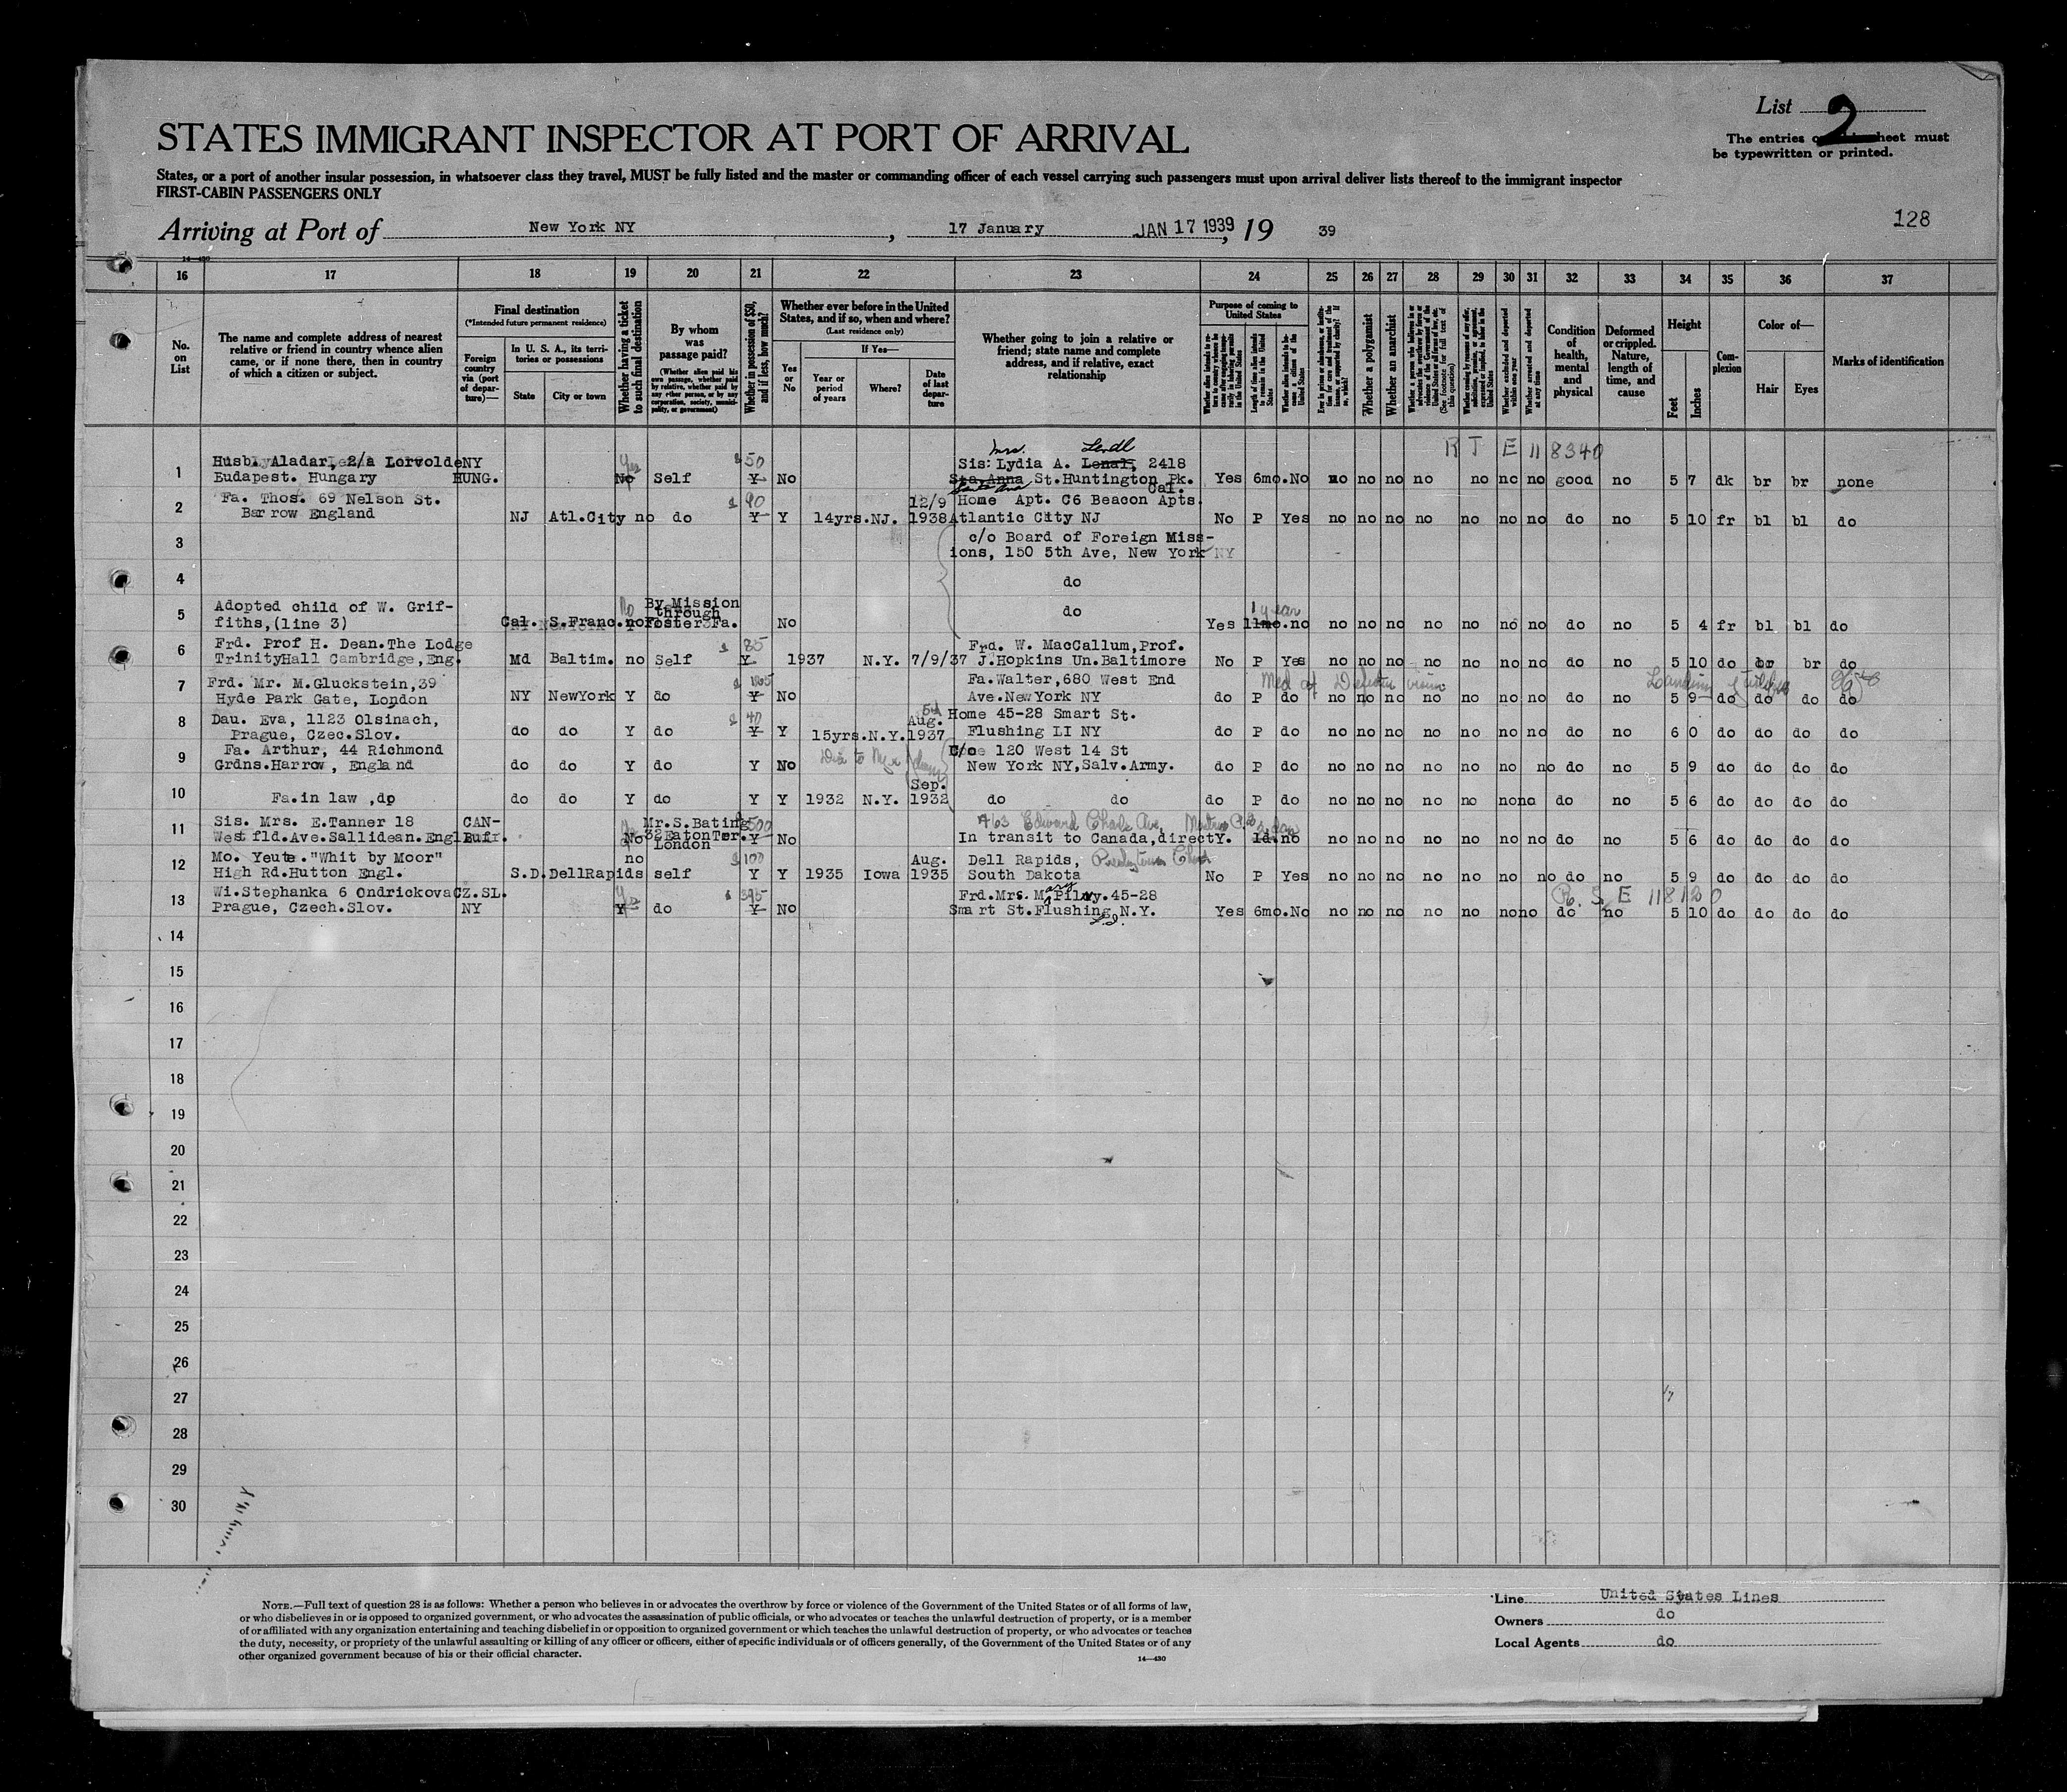 List 2
STATES IMMIGRANT INSPECTOR AT PORT OF ARRIVAL
The entries on sheet must
be typewritten or printed.
States, or a port of another insular possession, in whatsoever class they travel, MUST be fully listed and the master or commanding officer of each vessel carrying such passengers must upon arrival deliver lists thereof to the immigrant inspector
FIRST-CABIN PASSENGERS ONLY
Arriving at Port of New York NY, 17 January JAN 17 1939, 19 39
128
14-430
16 17 18 19 20 21 22 23 24 25 26 27 28 29 30 31 32 33 34 35 36 37
No. on List
The name and complete address of nearest relative or friend in country whence alien came, or if none there, then in country of which a citizen or subject.
Final destination
(*Intended future permanent residence)
Foreign country via (port of departure)—
In U. S. A., its territories or possessions
State
City or town
Whether having a ticket to such final destination
By whom was passage paid?
(Whether alien paid his own passage, whether paid by relative, whether paid by any other person, or by any corporation, society, municipality, or government)
Whether in possession of $50, and if less, how much?
Whether ever before in the United States, and if so, when and where?
(Last residence only)
Yes or No
If Yes—
Year or period of years
Where?
Date of last departure
Whether going to join a relative or friend; state name and complete address, and if relative, exact relationship
Purpose of coming to United States
Length of time alien intends to remain in the United States
Whether alien intends to become a citizen of the United States
Whether a polygamist
Whether an anarchist
(See footnote for full text of this question)
Whether excluded and deported within one year
Whether arrested and deported at any time
Condition of health, mental and physical
Deformed or crippled. Nature, length of time, and cause
Height
Feet
Inches
Complexion
Color of—
Hair
Eyes
Marks of identification
R T E 118340
1 Husb. Aladar, 2/a Lorvolde NY $50 Mrs. Lendl Sis: Lydia A. Lenal, 2418
Budapest. Hungary HUNG. Yes No Self Y No Sta. Anna St. Huntington Pk. Yes 6mo. No no no no no no no no good no 5 7 dk br br none
Santa Ana Cal.
2 Fa. Thos. 69 Nelson St. $ 90 12/9 Home Apt. C6 Beacon Apts.
Barrow England NJ Atl.City no do Y Y 14yrs. NJ. 1938 Atlantic City NJ No P Yes no no no no no no no do no 5 10 fr bl bl do
3 c/o Board of Foreign Miss-
ions, 150 5th Ave, New York NY
4 do
5 Adopted child of W. Grif- No By Mission do 1 year
fiths,(line 3) Cal. S.Franc. no through Foster Fa. No Yes 11mo. no no no no no no no no do no 5 4 fr bl bl do
6 Frd. Prof H. Dean. The Lodge $ 85 Frd. W. MacCallum, Prof.
TrinityHall Cambridge, Eng. Md Baltim. no Self Y 1937 N.Y. 7/9/37 J.Hopkins Un.Baltimore No P Yes no no no no no no no do no 5 10 do br br do
7 Frd. Mr. M.Gluckstein, 39 Fa. Walter, 680 West End Med of Defective vision
Hyde Park Gate, London NY NewYork Y do Y No Ave.New York NY do P do no no no no no no no do no 5 9 do do do do
8 Dau. Eva, 1123 Olsinach, $ 40 Aug. Home 45-28 Smart St.
Prague, Czec.Slov. do do Y do Y Y 15yrs. N.Y. 1937 Flushing LI NY do P do no no no no no no no do no 6 0 do do do do
9 Fa. Arthur, 44 Richmond C/o 120 West 14 St
Grdns. Harrow, England do do Y do Y No New York NY, Salv. Army. do P do no no no no no no no do no 5 9 do do do do
10 Sep.
Fa. in law, do do do Y do Y Y 1932 N.Y. 1932 do do do P do no no no no no no no do no 5 6 do do do do
11 Sis. Mrs. E.Tanner 18 CAN- Mr.S.Bating $500 463 Edward Charles Ave,
Westfld.Ave.Sallidean.Engl Bufr. No 32EatonTer. London Y No In transit to Canada,direct Y. 1d. no no no no no no no no do no 5 6 do do do do
12 Mo. Yeute. "Whit by Moor" no $100 Aug. Dell Rapids, Presbyterian Church
High Rd.Hutton Engl. S.D. DellRapids self Y Y 1935 Iowa 1935 South Dakota No P Yes no no no no no no no do no 5 9 do do do do
13 Wi.Stephanka 6 Ondrickova CZ.SL. Yes $ 395 Frd.Mrs. Mary Pilny. 45-28 R. S. E 118120
Prague, Czech.Slov. NY Y do Y No Smart St.Flushing, N.Y. Yes 6mo. No no no no no no no no do no 5 10 do do do do
L.I.
14
15
16
17
18
19
20
21
22
23
24
25
26
27
28
29
30
NOTE.—Full text of question 28 is as follows: Whether a person who believes in or advocates the overthrow by force or violence of the Government of the United States or of all forms of law,
or who disbelieves in or is opposed to organized government, or who advocates the assassination of public officials, or who advocates or teaches the unlawful destruction of property, or is a member
of or affiliated with any organization entertaining and teaching disbelief in or opposition to organized government or which teaches the unlawful destruction of property, or who advocates or teaches
the duty, necessity, or propriety of the unlawful assaulting or killing of any officer or officers, either of specific individuals or of officers generally, of the Government of the United States or of any
other organized government because of his or their official character.
14—430
Line United States Lines
Owners do
Local Agents do